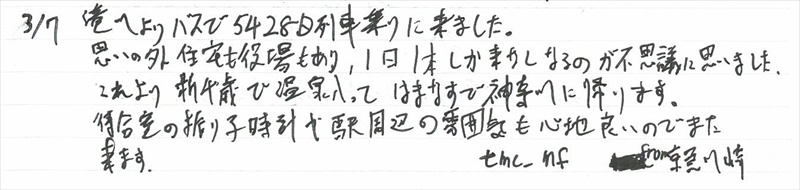 3/7 滝川よりバスで5428D列車乗りに来ました。
思いの外住宅も役場もあり、1日1本しか来なくなるのが不思議に思いました。
これより新千歳で温泉入って はまなすで神奈川に帰ります。
待合室の振り子時計や駅周辺の雰囲気も心地良いのでまた
来ます。 tmc_nf from京急川崎